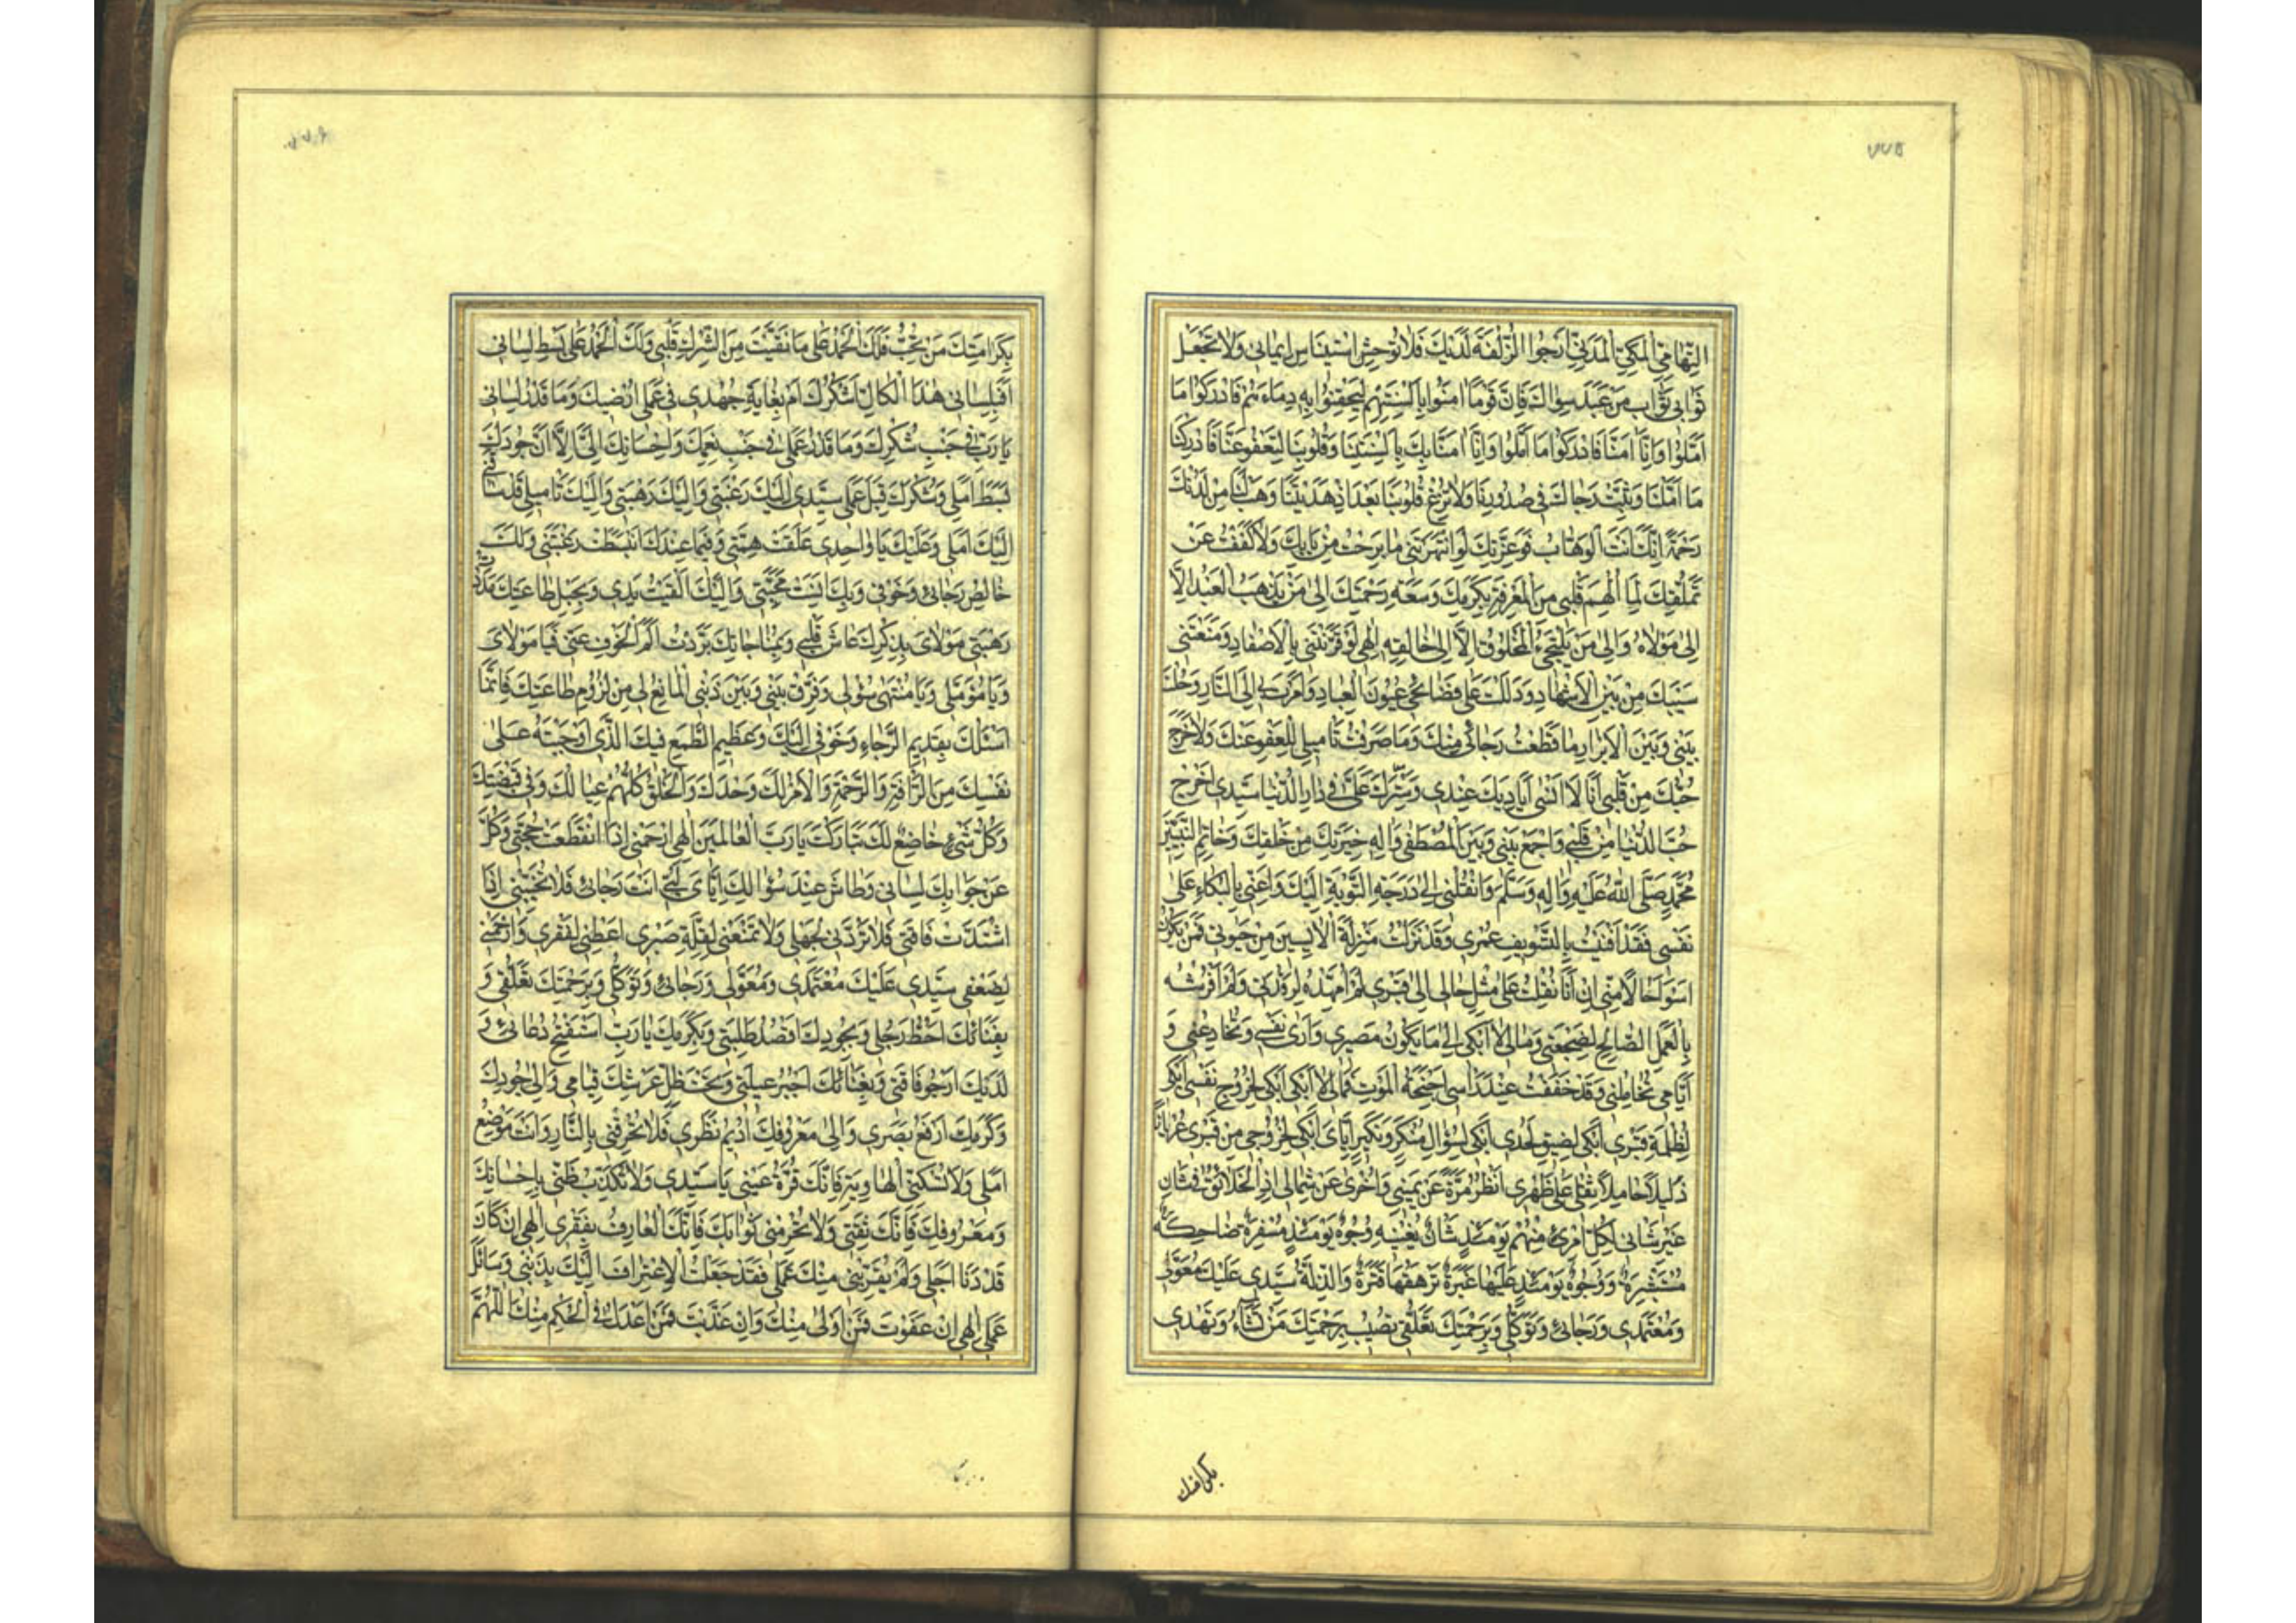 ٧٧٥
التِّهَامِيِّ الْمَكِّيِّ الْمَدَنِيِّ اَرْجُوا الزُّلْفَةَ لَدَيْكَ فَلَا تُوحِشِ اسْتِينَاسَ اِيمَانِي وَلَا تَجْعَلْ
ثَوَابِي ثَوَابَ مَنْ عَبَدَ سِوَاكَ فَاِنَّ قَوْمًا اٰمَنُوا بِاَلْسِنَتِهِمْ لِيَحْقِنُوا بِهِ دِمَاءَهُمْ فَاَدْرَكُوا مَا
اَمَّلُوا وَاِنَّا اٰمَنَّا فَاَدْرَكُوا مَا اَمَّلُوا وَاِنَّا اٰمَنَّا بِكَ بِاَلْسِنَتِنَا وَقُلُوبِنَا لِتَعْفُوَ عَنَّا فَاَدْرِكْنَا
مَا اَمَّلْنَا وَثَبِّتْ رَجَاكَ فِي صُدُورِنَا وَلَا تُزِغْ قُلُوبَنَا بَعْدَ اِذْ هَدَيْتَنَا وَهَبْ لَنَا مِنْ لَدُنْكَ
رَحْمَةً اِنَّكَ اَنْتَ الْوَهَّابُ فَوَعِزَّتِكَ لَوِ انْتَهَرْتَنِي مَا بَرِحْتُ مِنْ بَابِكَ وَلَا كَفَفْتُ عَنْ
تَمَلُّقِكَ لِمَا اُلْهِمَ قَلْبِي مِنَ الْمَعْرِفَةِ بِكَرَمِكَ وَسَعَةِ رَحْمَتِكَ اِلٰى مَنْ يَذْهَبُ الْعَبْدُ اِلَّا
اِلٰى مَوْلَاهُ وَاِلٰى مَنْ يَلْتَجِئُ الْمَخْلُوقُ اِلَّا اِلٰى خَالِقِهِ اِلٰهِي لَوْ قَرَنْتَنِي بِالْاَصْفَادِ وَمَنَعْتَنِي
سَيْبَكَ مِنْ بَيْنِ الْاَشْهَادِ وَدَلَلْتَ عَلٰى فَضَايِحِي عُيُونَ الْعِبَادِ وَاَمَرْتَ بِي اِلَى النَّارِ وَحُلْتَ
بَيْنِي وَبَيْنَ الْاَبْرَارِ مَا قَطَعْتُ رَجَائِي مِنْكَ وَمَا صَرَفْتُ تَامِيلِي لِلْعَفْوِ عَنْكَ وَلَا خَرَجَ
حُبُّكَ مِنْ قَلْبِي اَنَا لَا اَنْسٰى اَيَادِيَكَ عِنْدِي وَسِتْرَكَ عَلَيَّ فِي دَارِ الدُّنْيَا سَيِّدِي اَخْرِجْ
حُبَّ الدُّنْيَا مِنْ قَلْبِي وَاجْمَعْ بَيْنِي وَبَيْنَ الْمُصْطَفٰى وَاٰلِهِ خِيَرَتِكَ مِنْ خَلْقِكَ وَخَاتَمِ النَّبِيِّينَ
مُحَمَّدٍ صَلَّى اللّٰهُ عَلَيْهِ وَاٰلِهِ وَسَلَّمَ وَانْقُلْنِي اِلٰى دَرَجَةِ التَّوْبَةِ اِلَيْكَ وَاَعِنِّي بِالْبُكَاءِ عَلٰى
نَفْسِي فَقَدْ اَفْنَيْتُ بِالتَّسْوِيفِ عُمْرِي وَقَدْ نَزَلْتُ مَنْزِلَةَ الْاٰيِسِينَ مِنْ حَيٰوتِي فَمَنْ يَكُونُ
اَسْوَءَ حَالًا مِنِّي اِنْ اَنَا نُقِلْتُ عَلٰى مِثْلِ حَالِي اِلٰى قَبْرِي لَمْ اُمَهِّدْهُ لِرَقْدَتِي وَلَمْ اَفْرُشْهُ
بِالْعَمَلِ الصَّالِحِ لِضَجْعَتِي وَمَالِي لَا اَبْكِي اِلٰى مَا يَكُونُ مَصِيرِي وَاَرٰى نَفْسِي تُخَادِعُنِي وَ
اَيَّامِي تُخَاتِلُنِي وَقَدْ خَفَقَتْ عِنْدَ رَاسِي اَجْنِحَةُ الْمَوْتِ فَمَالِي لَا اَبْكِي اَبْكِي لِخُرُوجِ نَفْسِي اَبْكِي
لِظُلْمَةِ قَبْرِي اَبْكِي لِضِيقِ لَحْدِي اَبْكِي لِسُؤَالِ مُنْكَرٍ وَنَكِيرٍ اِيَّايَ اَبْكِي لِخُرُوجِي مِنْ قَبْرِي عُرْيَانًا
ذَلِيلًا حَامِلًا ثِقْلِي عَلٰى ظَهْرِي اَنْظُرُ مَرَّةً عَنْ يَمِينِي وَاُخْرٰى عَنْ شِمَالِي اِذِ الْخَلَائِقُ فِي شَانٍ
غَيْرِ شَانِي لِكُلِّ امْرِئٍ مِنْهُمْ يَوْمَئِذٍ شَانٌ يُغْنِيهِ وُجُوهٌ يَوْمَئِذٍ مُسْفِرَةٌ ضَاحِكَةٌ
مُسْتَبْشِرَةٌ وَوُجُوهٌ يَوْمَئِذٍ عَلَيْهَا غَبَرَةٌ تَرْهَقُهَا قَتَرَةٌ وَالذِّلَّةُ سَيِّدِي عَلَيْكَ مُعَوَّلِي
وَمُعْتَمَدِي وَرَجَائِي وَتَوَكُّلِي وَبِرَحْمَتِكَ تَعَلُّقِي تُصِيبُ بِرَحْمَتِكَ مَنْ تَشَاءُ وَتَهْدِي
بكرامتك
٧٧٦
بِكَرَامَتِكَ مَنْ تُحِبُّ فَلَكَ الْحَمْدُ عَلٰى مَا نَقَّيْتَ مِنَ الشِّرْكِ قَلْبِي وَلَكَ الْحَمْدُ عَلٰى بَسْطِ لِسَانِي
اَفَبِلِسَانِي هٰذَا الْكَالِّ اَشْكُرُكَ اَمْ بِغَايَةِ جُهْدِي فِي عَمَلِي اُرْضِيكَ وَمَا قَدْرُ لِسَانِي
يَا رَبِّ فِي جَنْبِ شُكْرِكَ وَمَا قَدْرُ عَمَلِي فِي جَنْبِ نِعَمِكَ وَاِحْسَانِكَ اِلَيَّ اِلَّا اَنَّ جُودَكَ
بَسَطَ اَمَلِي وَشُكْرَكَ قَبِلَ عَمَلِي سَيِّدِي اِلَيْكَ رَغْبَتِي وَاِلَيْكَ رَهْبَتِي وَاِلَيْكَ تَامِيلِي قَدْ سَاقَنِي
اِلَيْكَ اَمَلِي وَعَلَيْكَ يَا وَاحِدِي عَلِقَتْ هِمَّتِي وَفِيمَا عِنْدَكَ انْبَسَطَتْ رَغْبَتِي وَلَكَ
خَالِصُ رَجَائِي وَخَوْفِي وَبِكَ اَنِسَتْ مَحَبَّتِي وَاِلَيْكَ اَلْقَيْتُ بِيَدِي وَبِحَبْلِ طَاعَتِكَ مَدَدْتُ
رَهْبَتِي مَوْلَايَ بِذِكْرِكَ عَاشَ قَلْبِي وَبِمُنَاجَاتِكَ بَرَّدْتُ اَلَمَ الْخَوْفِ عَنِّي فَيَا مَوْلَايَ
وَيَا مُؤَمَّلِي وَيَا مُنْتَهٰى سُؤْلِي وَفَرِّقْ بَيْنِي وَبَيْنَ ذَنْبِي الْمَانِعِ لِي مِنْ لُزُومِ طَاعَتِكَ فَاِنَّمَا
اَسْئَلُكَ بِقَدِيمِ الرَّجَاءِ وَخَوْفِي اِلَيْكَ وَعَظِيمِ الطَّمَعِ فِيكَ الَّذِي اَوْجَبْتَهُ عَلٰى
نَفْسِكَ مِنَ الرَّاْفَةِ وَالرَّحْمَةِ وَالْاَمْرُ لَكَ وَحْدَكَ وَالْخَلْقُ كُلُّهُمْ عِيَالُكَ وَفِي قَبْضَتِكَ
وَكُلُّ شَيْءٍ خَاضِعٌ لَكَ تَبَارَكْتَ يَا رَبَّ الْعَالَمِينَ اِلٰهِي ارْحَمْنِي اِذَا انْقَطَعَتْ حُجَّتِي وَكَلَّ
عَنْ جَوَابِكَ لِسَانِي وَطَاشَ عِنْدَ سُؤَالِكَ اِيَّايَ لُبِّي اَنْتَ رَجَائِي فَلَا تُخَيِّبْنِي اِذَا
اشْتَدَّتْ فَاقَتِي فَلَا تَرُدَّنِي لِجَهْلِي وَلَا تَمْنَعْنِي لِقِلَّةِ صَبْرِي اَعْطِنِي لِفَقْرِي وَارْحَمْنِي
لِضَعْفِي سَيِّدِي عَلَيْكَ مُعْتَمَدِي وَمُعَوَّلِي وَرَجَائِي وَتَوَكُّلِي وَبِرَحْمَتِكَ تَعَلُّقِي وَ
بِفَنَائِكَ اَحُطُّ رَحْلِي وَبِجُودِكَ اَقْصُدُ طَلِبَتِي وَبِكَرَمِكَ يَا رَبِّ اَسْتَفْتِحُ دُعَائِي وَ
لَدَيْكَ اَرْجُو فَاقَتِي وَبِغِنَائِكَ اَجْبُرُ عَيْلَتِي وَتَحْتَ ظِلِّ عَرْشِكَ قِيَامِي وَاِلٰى جُودِكَ
وَكَرَمِكَ اَرْفَعُ بَصَرِي وَاِلٰى مَعْرُوفِكَ اُدِيمُ نَظَرِي فَلَا تُحْرِقْنِي بِالنَّارِ وَاَنْتَ مَوْضِعُ
اَمَلِي وَلَا تُسْكِنِّي الْهَاوِيَةَ فَاِنَّكَ قُرَّةُ عَيْنِي يَا سَيِّدِي وَلَا تُكَذِّبْ ظَنِّي بِاِحْسَانِكَ
وَمَعْرُوفِكَ فَاِنَّكَ ثِقَتِي وَلَا تَحْرِمْنِي ثَوَابَكَ فَاِنَّكَ الْعَارِفُ بِفَقْرِي اِلٰهِي اِنْ كَانَ
قَدْ دَنَا اَجَلِي وَلَمْ يُقَرِّبْنِي مِنْكَ عَمَلِي فَقَدْ جَعَلْتُ الْاِعْتِرَافَ اِلَيْكَ بِذَنْبِي وَسَائِلَ
عَمَلِي اِلٰهِي اِنْ عَفَوْتَ فَمَنْ اَوْلٰى مِنْكَ وَاِنْ عَذَّبْتَ فَمَنْ اَعْدَلُ فِي الْحُكْمِ مِنْكَ اَللّٰهُمَّ